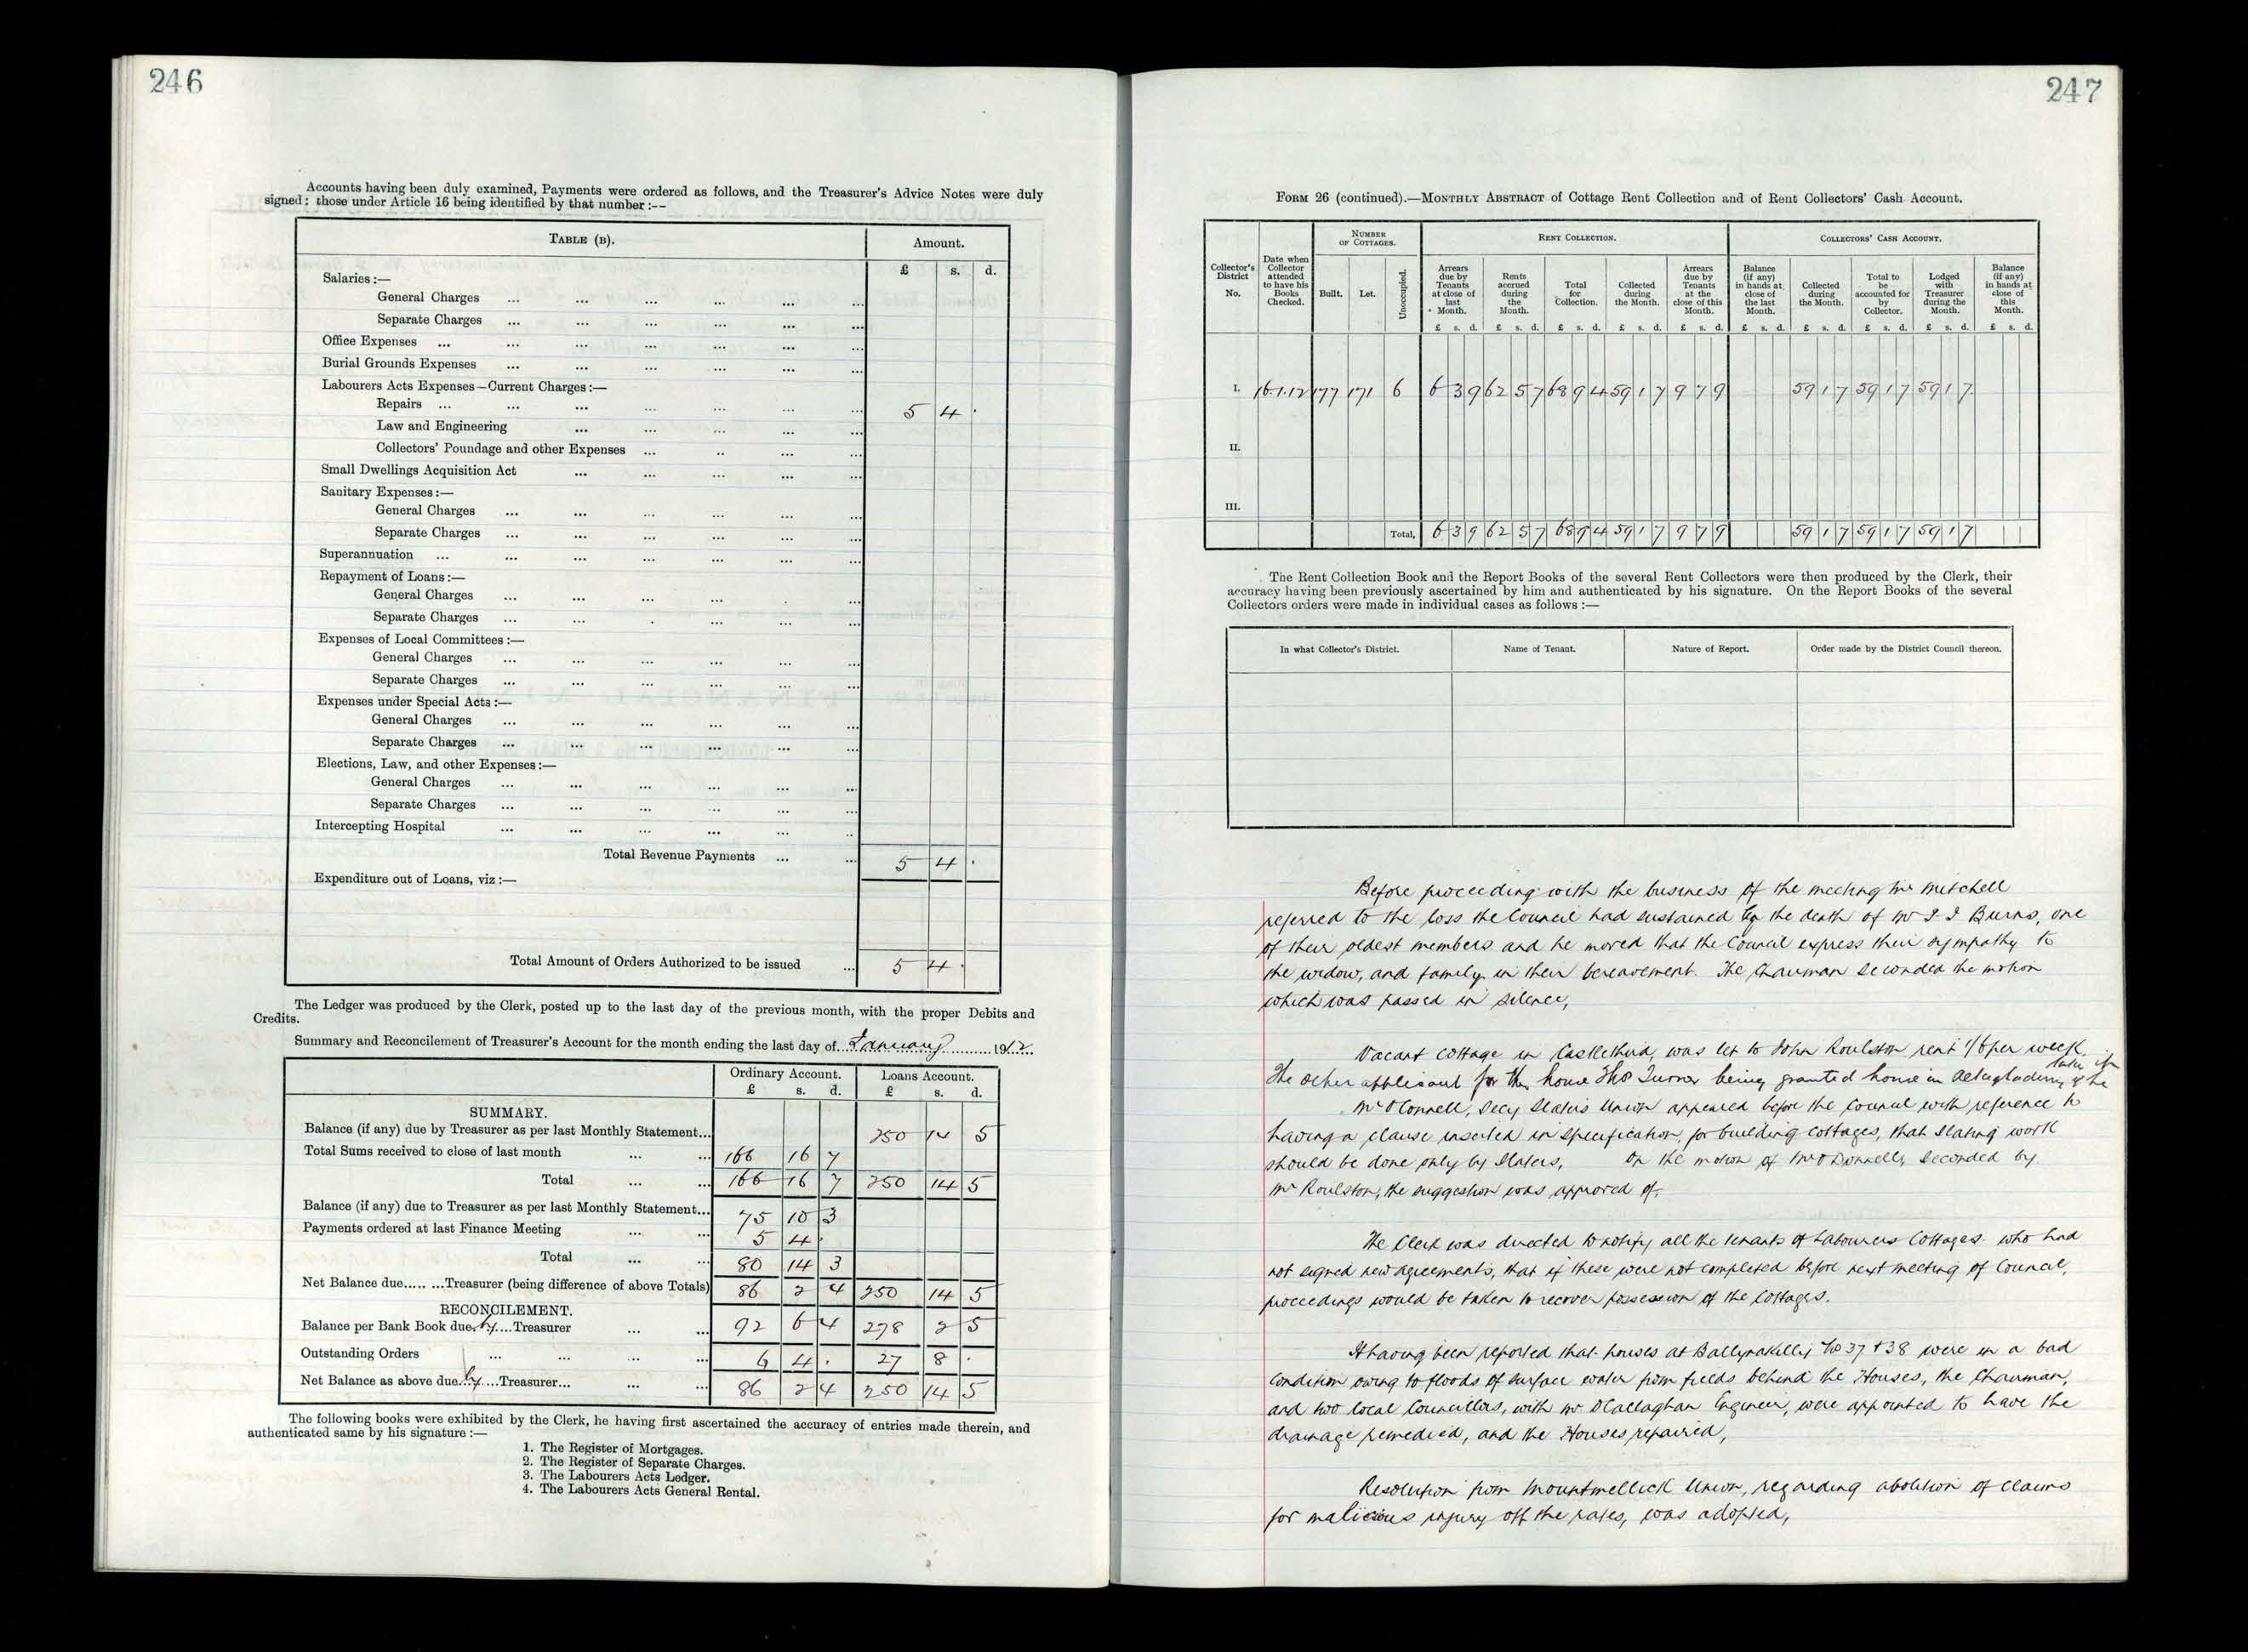 246
Accounts having been duly examined, Payments were ordered as follows, and the Treasurer's Advice Notes were duly
signed: those under Article 16 being identified by that number :--
TABLE (B). Amount.
£ s. d.
Salaries :—
General Charges ... ... ... ... ... ...
Separate Charges ... ... ... ... ... ...
Office Expenses ... ... ... ... ... ...
Burial Grounds Expenses ... ... ... ... ... ...
Labourers Acts Expenses—Current Charges :—
Repairs ... ... ... ... ... ... 5 4 .
Law and Engineering ... ... ... ... ...
Collectors' Poundage and other Expenses ... .. ... ...
Small Dwellings Acquisition Act ... ... ... ... ...
Sanitary Expenses :—
General Charges ... ... ... ... ... ...
Separate Charges ... ... ... ... ... ...
Superannuation ... ... ... ... ... ...
Repayment of Loans :—
General Charges ... ... ... ... . ...
Separate Charges ... ... . ... ... ...
Expenses of Local Committees :—
General Charges ... ... ... ... ... ...
Separate Charges ... ... ... ... ... ...
Expenses under Special Acts :—
General Charges ... ... ... ... ... ...
Separate Charges ... ... ... ... ... ...
Elections, Law, and other Expenses :—
General Charges ... ... ... ... ... ...
Separate Charges ... ... ... ... ... ...
Intercepting Hospital ... ... ... ... ... ..
Total Revenue Payments ... ... 5 4 .
Expenditure out of Loans, viz :—
Total Amount of Orders Authorized to be issued ... 5 4 .
The Ledger was produced by the Clerk, posted up to the last day of the previous month, with the proper Debits and
Credits.
Summary and Reconcilement of Treasurer's Account for the month ending the last day of January 1912
Ordinary Account. Loans Account.
£ s. d. £ s. d.
SUMMARY.
Balance (if any) due by Treasurer as per last Monthly Statement... 250 14 5
Total Sums received to close of last month ... ... 166 16 7
Total ... ... 166 16 7 250 14 5
Balance (if any) due to Treasurer as per last Monthly Statement... 75 10 3
Payments ordered at last Finance Meeting ... ... 5 4 .
Total ... ... 80 14 3
Net Balance due..... ...Treasurer (being difference of above Totals) 86 2 4 250 14 5
RECONCILEMENT.
Balance per Bank Book due by Treasurer ... ... 92 6 4 278 2 5
Outstanding Orders ... ... ... ... 6 4 . 27 8 .
Net Balance as above due by Treasurer... ... ... 86 2 4 250 14 5
The following books were exhibited by the Clerk, he having first ascertained the accuracy of entries made therein, and
authenticated same by his signature :—
1. The Register of Mortgages.
2. The Register of Separate Charges.
3. The Labourers Acts Ledger.
4. The Labourers Acts General Rental.
247
FORM 26 (continued).—MONTHLY ABSTRACT of Cottage Rent Collection and of Rent Collectors' Cash Account.
Collector's District No. Date when Collector attended to have his Books Checked. NUMBER OF COTTAGES. RENT COLLECTION. COLLECTORS' CASH ACCOUNT.
Built. Let. Unoccupied. Arrears due by Tenants at close of last Month. Rents accrued during the Month. Total for Collection. Collected during the Month. Arrears due by Tenants at the close of this Month. Balance (if any) in hands at close of the last Month. Collected during the Month. Total to be accounted for by Collector. Lodged with Treasurer during the Month. Balance (if any) in hands at close of this Month.
£ s. d. £ s. d. £ s. d. £ s. d. £ s. d. £ s. d. £ s. d. £ s. d. £ s. d. £ s. d.
I. 16.1.12 177 171 6 6 3 9 62 5 7 68 9 4 59 1 7 9 7 9 59 1 7 59 1 7 59 1 7
II.
III.
Total, 6 3 9 62 5 7 68 9 4 59 1 7 9 7 9 59 1 7 59 1 7 59 1 7
The Rent Collection Book and the Report Books of the several Rent Collectors were then produced by the Clerk, their
accuracy having been previously ascertained by him and authenticated by his signature. On the Report Books of the several
Collectors orders were made in individual cases as follows :—
In what Collector's District. Name of Tenant. Nature of Report. Order made by the District Council thereon.
Before proceeding with the business of the meeting Mr Mitchell
referred to the loss the Council had sustained by the death of Mr J J Burns, one
of their oldest members and he moved that the Council express their sympathy to
the widow, and family in their bereavement. The Chairman seconded the motion
which was passed in silence,
Vacant cottage in was let to John Roulston rent 1/6 per week.
The other applicant for the house Thos Turner being granted house in if he
Mr O'Connell, Secy Slaters Union appeared before the Council with reference to
having a clause inserted in specification, for building cottages, that slating work
should be done only by slaters, On the motion of Mr O'Donnell, seconded by
Mr Roulston, the suggestion was approved of.
The Clerk was directed to notify all the tenants of Labourers Cottages who had
not signed new agreements, that if these were not completed before next meeting of Council,
proceedings would be taken to recover possession of the Cottages.
It having been reported that houses at Ballynakilly No 37 & 38 were in a bad
condition owing to floods of surface water from fields behind the Houses, the Chairman,
and two local Councillors, with Mr O'Callaghan Engineer, were appointed to have the
drainage remedied, and the Houses repaired,
Resolution from Mountmellick Union, regarding abolition of claims
for malicious injury off the rates, was adopted,